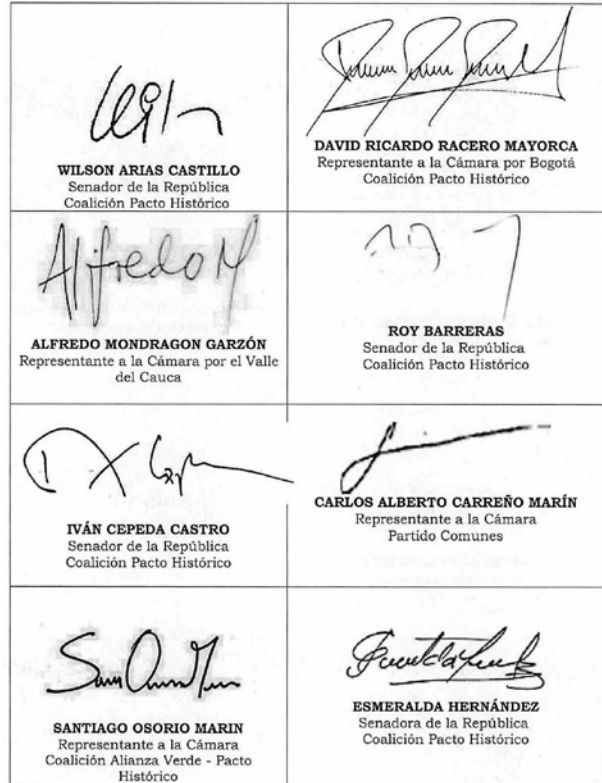 WILSON ARIAS CASTILLO
Senador de la República
Coalición Pacto Histórico
DAVID RICARDO RACERO MAYORCA
Representante a la Cámara por Bogotá
Coalición Pacto Histórico
Alfredo M
ALFREDO MONDRAGON GARZÓN
Representante a la Cámara por el Valle
del Cauca
ROY BARRERAS
Senador de la República
Coalición Pacto Histórico
IVÁN CEPEDA CASTRO
Senador de la República
Coalición Pacto Histórico
CARLOS ALBERTO CARREÑO MARÍN
Representante a la Cámara
Partido Comunes
SANTIAGO OSORIO MARIN
Representante a la Cámara
Coalición Alianza Verde - Pacto
Histórico
ESMERALDA HERNÁNDEZ
Senadora de la República
Coalición Pacto Histórico